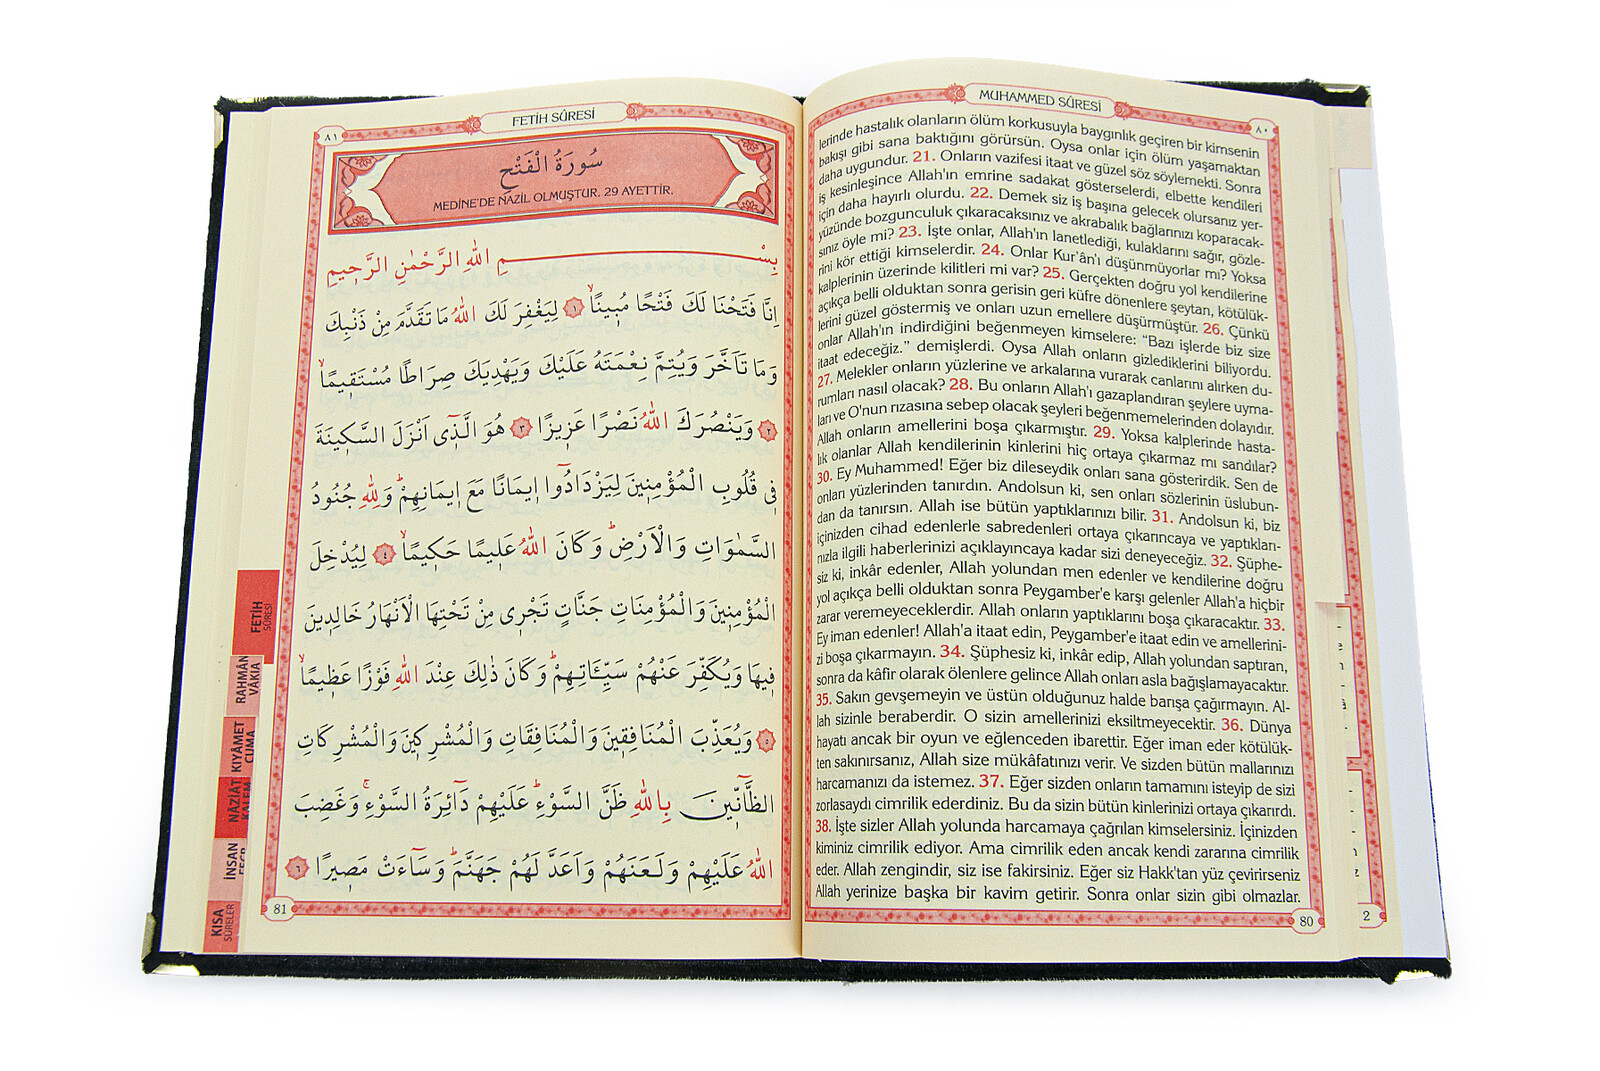 MUHAMMED SÛRESİ
٨٠
lerinde hastalık olanların ölüm korkusuyla baygınlık geçiren bir kimsenin
bakışı gibi sana baktığını görürsün. Oysa onlar için ölüm yaşamaktan
daha uygundur. 21. Onların vazifesi itaat ve güzel söz söylemekti. Sonra
iş kesinleşince Allah'ın emrine sadakat gösterselerdi, elbette kendileri
için daha hayırlı olurdu. 22. Demek siz iş başına gelecek olursanız yer-
yüzünde bozgunculuk çıkaracaksınız ve akrabalık bağlarınızı koparacak-
sınız öyle mi? 23. İşte onlar, Allah'ın lanetlediği, kulaklarını sağır, gözle-
rini kör ettiği kimselerdir. 24. Onlar Kur'ân'ı düşünmüyorlar mı? Yoksa
kalplerinin üzerinde kilitleri mi var? 25. Gerçekten doğru yol kendilerine
açıkça belli olduktan sonra gerisin geri küfre dönenlere şeytan, kötülük-
lerini güzel göstermiş ve onları uzun emellere düşürmüştür. 26. Çünkü
onlar Allah'ın indirdiğini beğenmeyen kimselere: “Bazı işlerde biz size
itaat edeceğiz.” demişlerdi. Oysa Allah onların gizlediklerini biliyordu.
27. Melekler onların yüzlerine ve arkalarına vurarak canlarını alırken du-
rumları nasıl olacak? 28. Bu onların Allah'ı gazaplandıran şeylere uyma-
ları ve O'nun rızasına sebep olacak şeyleri beğenmemelerinden dolayıdır.
Allah onların amellerini boşa çıkarmıştır. 29. Yoksa kalplerinde hasta-
lık olanlar Allah kendilerinin kinlerini hiç ortaya çıkarmaz mı sandılar?
30. Ey Muhammed! Eğer biz dileseydik onları sana gösterirdik. Sen de
onları yüzlerinden tanırdın. Andolsun ki, sen onları sözlerinin üslubun-
dan da tanırsın. Allah ise bütün yaptıklarınızı bilir. 31. Andolsun ki, biz
içinizden cihad edenlerle sabredenleri ortaya çıkarıncaya ve yaptıkları-
nızla ilgili haberlerinizi açıklayıncaya kadar sizi deneyeceğiz. 32. Şüphe-
siz ki, inkâr edenler, Allah yolundan men edenler ve kendilerine doğru
yol açıkça belli olduktan sonra Peygamber'e karşı gelenler Allah'a hiçbir
zarar veremeyeceklerdir. Allah onların yaptıklarını boşa çıkaracaktır. 33.
Ey iman edenler! Allah'a itaat edin, Peygamber'e itaat edin ve amellerini-
zi boşa çıkarmayın. 34. Şüphesiz ki, inkâr edip, Allah yolundan saptıran,
sonra da kâfir olarak ölenlere gelince Allah onları asla bağışlamayacaktır.
35. Sakın gevşemeyin ve üstün olduğunuz halde barışa çağırmayın. Al-
lah sizinle beraberdir. O sizin amellerinizi eksiltmeyecektir. 36. Dünya
hayatı ancak bir oyun ve eğlenceden ibarettir. Eğer iman eder kötülük-
ten sakınırsanız, Allah size mükâfatınızı verir. Ve sizden bütün mallarınızı
harcamanızı da istemez. 37. Eğer sizden onların tamamını isteyip de sizi
zorlasaydı cimrilik ederdiniz. Bu da sizin bütün kinlerinizi ortaya çıkarırdı.
38. İşte sizler Allah yolunda harcamaya çağrılan kimselersiniz. İçinizden
kiminiz cimrilik ediyor. Ama cimrilik eden ancak kendi zararına cimrilik
eder. Allah zengindir, siz ise fakirsiniz. Eğer siz Hakk'tan yüz çevirirseniz
Allah yerinize başka bir kavim getirir. Sonra onlar sizin gibi olmazlar.
80
2
٨١
FETİH SÛRESİ
سُورَةُ الْفَتْحِ
MEDİNE'DE NAZİL OLMUŞTUR. 29 AYETTİR.
بِسْمِ اللهِ الرَّحْمٰنِ الرَّحِيمِ
اِنَّا فَتَحْنَا لَكَ فَتْحًا مُبِينًاۙ ﴿١﴾ لِيَغْفِرَ لَكَ اللهُ مَا تَقَدَّمَ مِنْ ذَنْبِكَ
وَمَا تَاَخَّرَ وَيُتِمَّ نِعْمَتَهُ عَلَيْكَ وَيَهْدِيَكَ صِرَاطًا مُسْتَقِيمًاۙ
﴿٢﴾ وَيَنْصُرَكَ اللهُ نَصْرًا عَزِيزًا ﴿٣﴾ هُوَ الَّذِٓى اَنْزَلَ السَّكِينَةَ
فِى قُلُوبِ الْمُؤْمِنِينَ لِيَزْدَادُٓوا اِيمَانًا مَعَ اِيمَانِهِمْۜ وَلِلّٰهِ جُنُودُ
السَّمٰوَاتِ وَالْاَرْضِۜ وَكَانَ اللهُ عَلِيمًا حَكِيمًاۙ ﴿٤﴾ لِيُدْخِلَ
الْمُؤْمِنِينَ وَالْمُؤْمِنَاتِ جَنَّاتٍ تَجْرِى مِنْ تَحْتِهَا الْاَنْهَارُ خَالِدِينَ
فِيهَا وَيُكَفِّرَ عَنْهُمْ سَيِّـَٔاتِهِمْۜ وَكَانَ ذٰلِكَ عِنْدَ اللهِ فَوْزًا عَظِيمًاۙ
﴿٥﴾ وَيُعَذِّبَ الْمُنَافِقِينَ وَالْمُنَافِقَاتِ وَالْمُشْرِكِينَ وَالْمُشْرِكَاتِ
الظَّٓانِّينَ بِاللهِ ظَنَّ السَّوْءِۜ عَلَيْهِمْ دَٓائِرَةُ السَّوْءِۚ وَغَضِبَ
اللهُ عَلَيْهِمْ وَلَعَنَهُمْ وَاَعَدَّ لَهُمْ جَهَنَّمَۜ وَسَٓاءَتْ مَصِيرًا ﴿٦﴾
81
FETİH
SÛRESİ
RAHMÂN
VÂKIA
KIYÂMET
CUMA
NAZİÂT
KALEM
İNSAN
KISA
SÛRELER